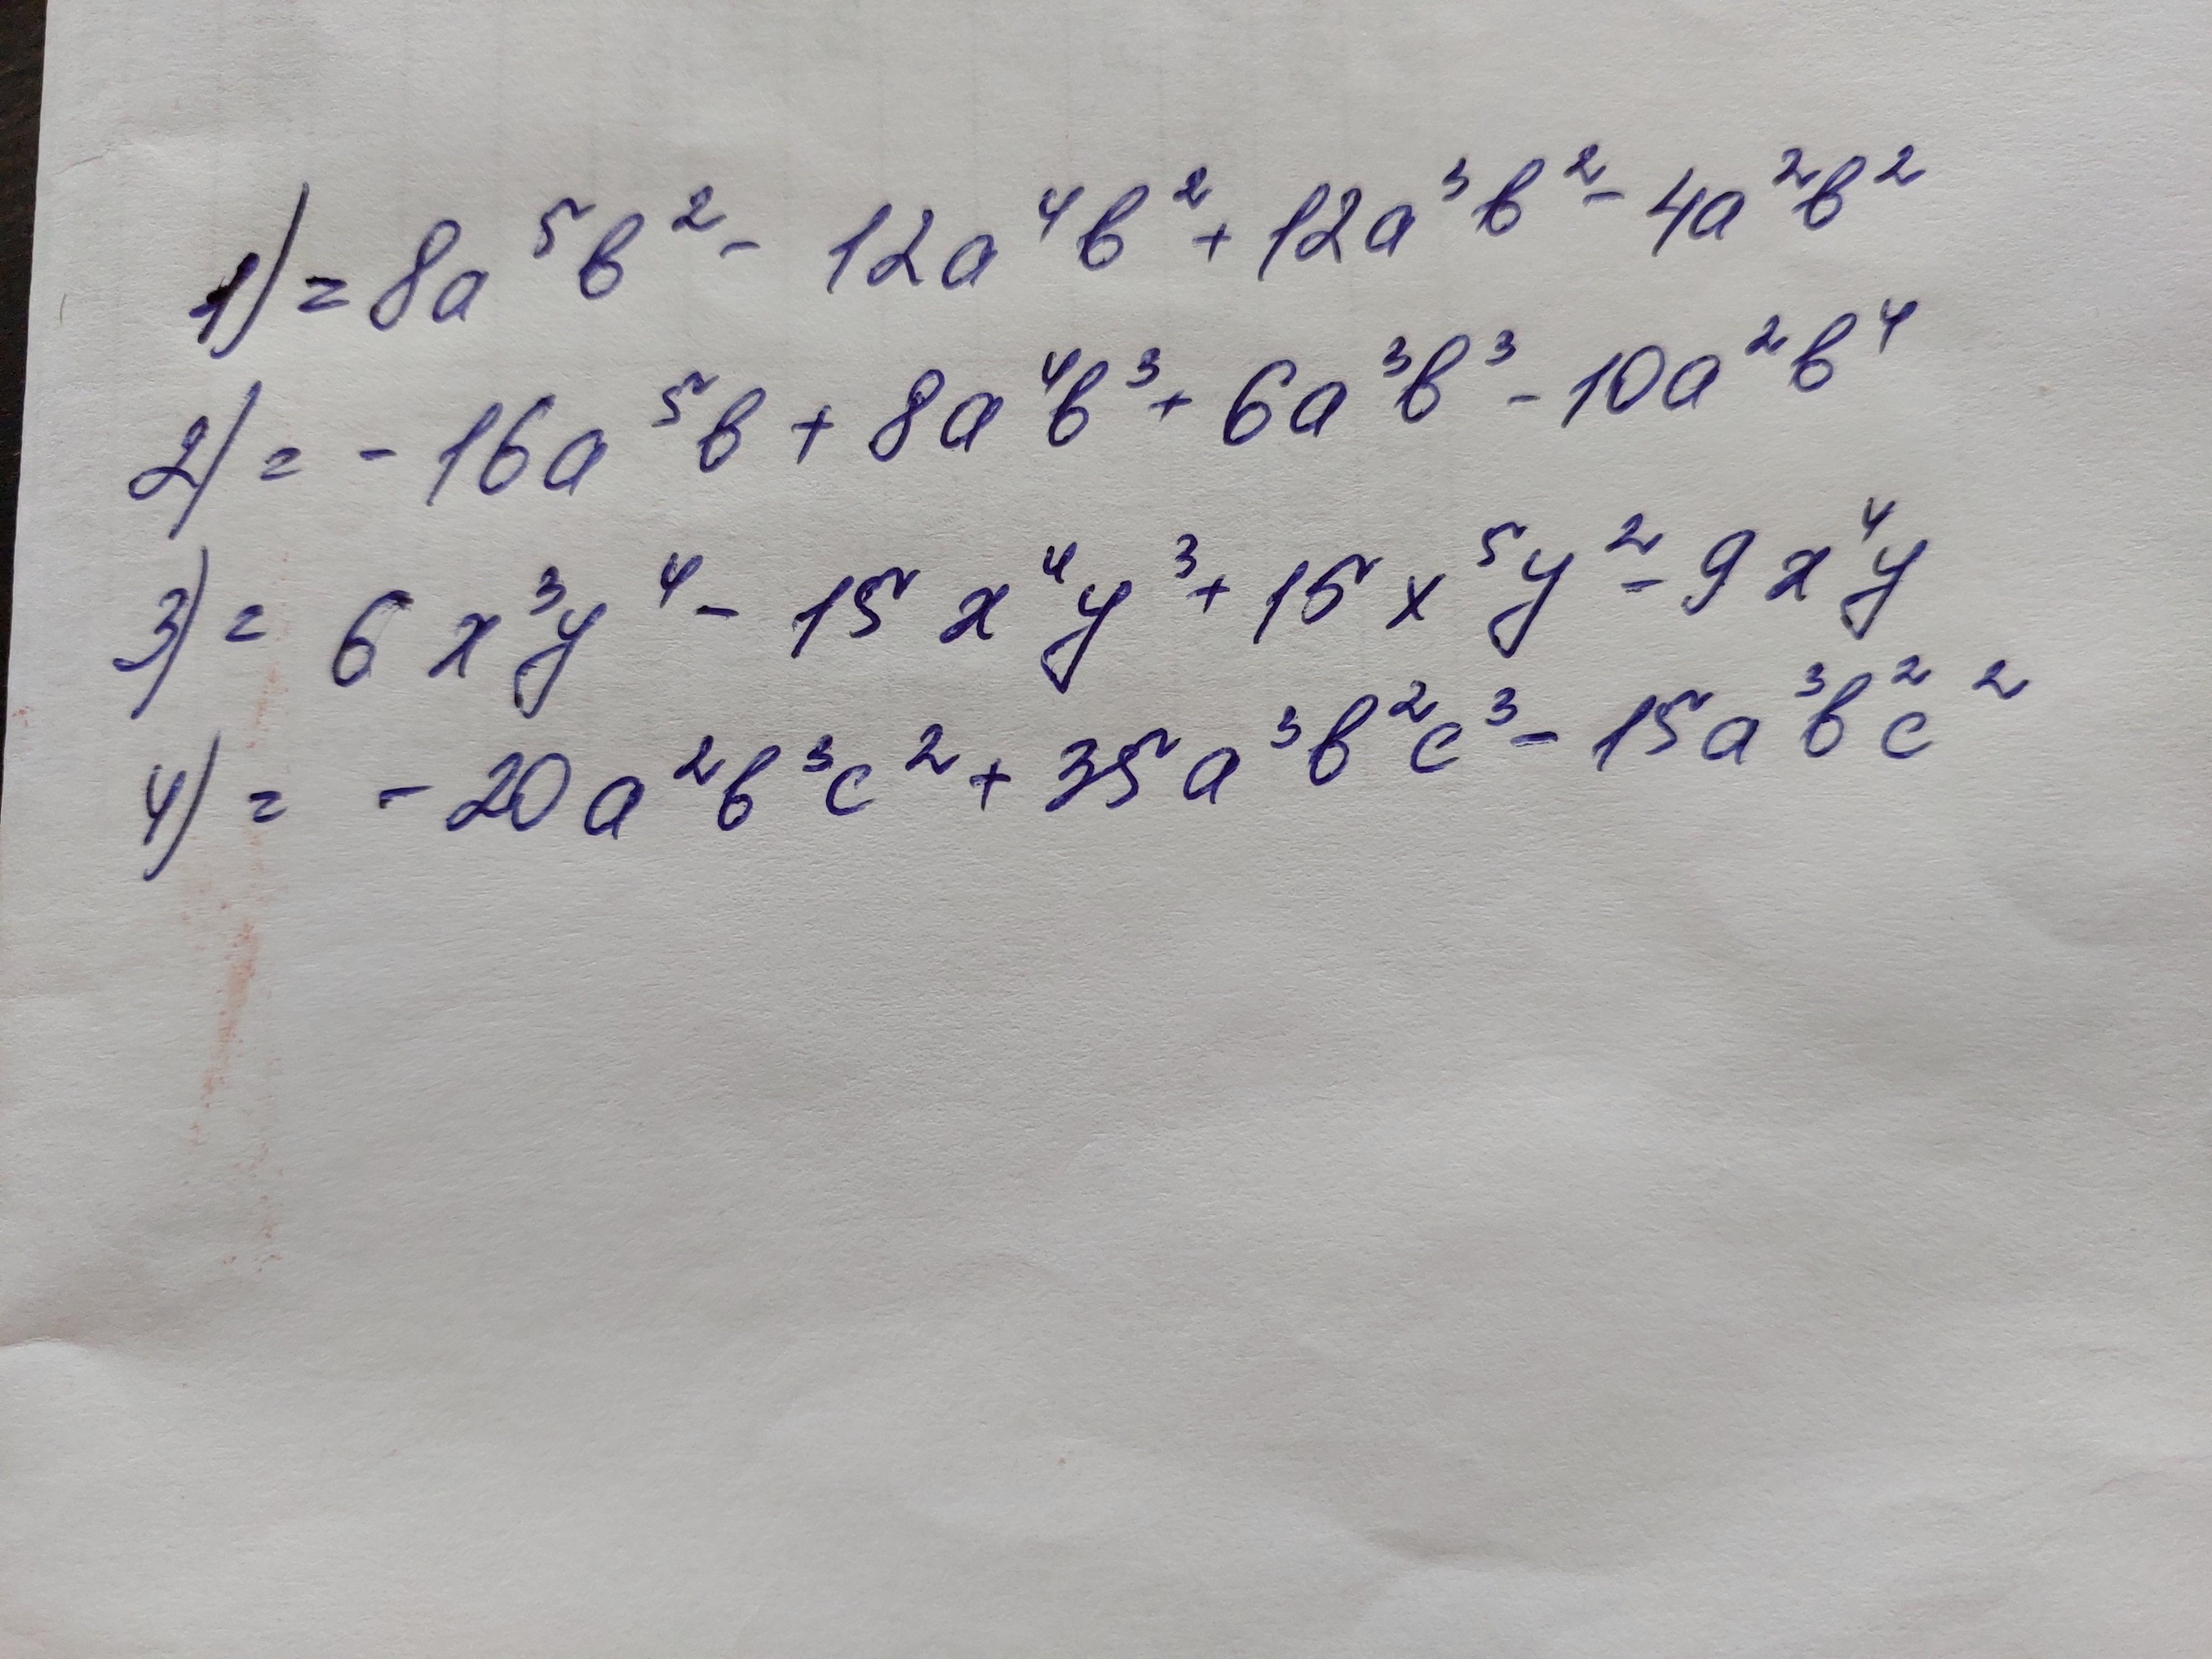 1) = 8a⁵b² - 12a⁴b² + 12a³b² - 4a²b²
2) = - 16a⁵b + 8a⁴b³ + 6a³b³ - 10a²b⁴
3) = 6x³y⁴ - 15x⁴y³ + 15x⁵y² - 9x⁴y
4) = - 20a²b³c² + 35a³b²c³ - 15a³b²c²